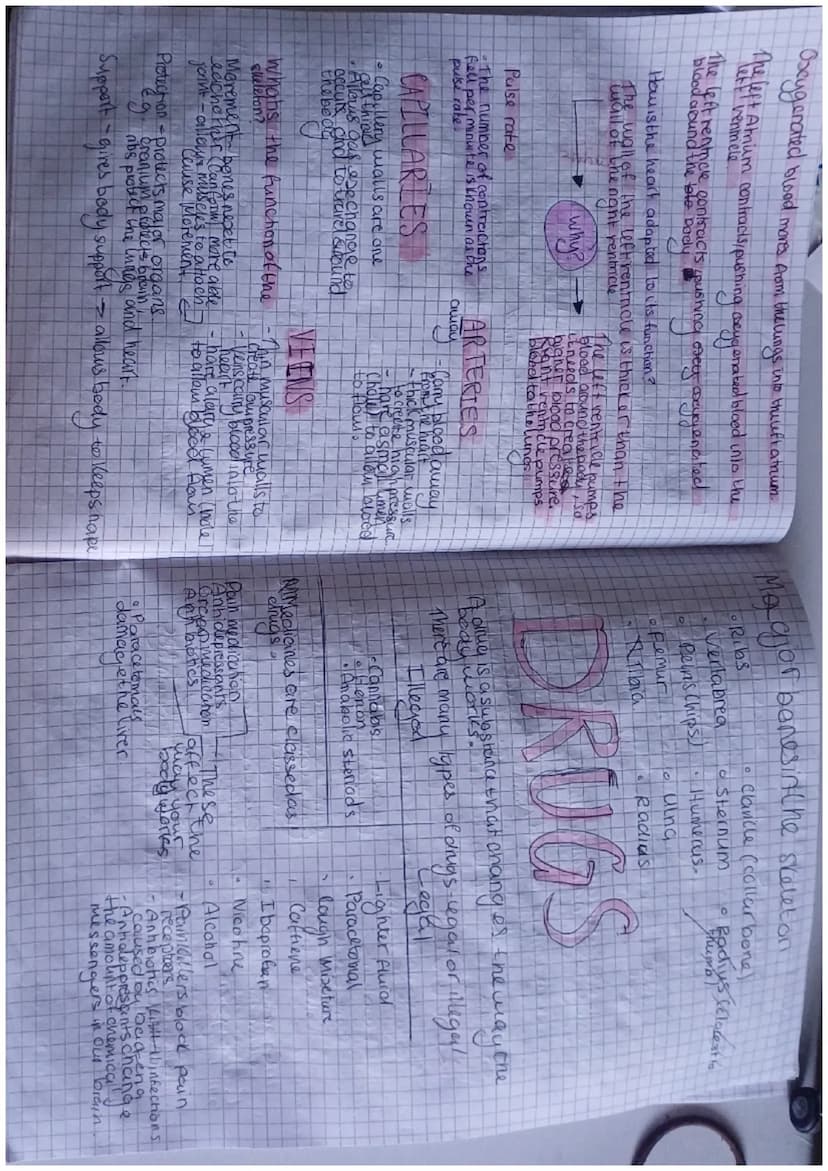 Oxygenated blood moves from the lungs into the left atrium
The left Atrium contracts, pushing oxygenated blood into the
left ventricle.
The left ventricle contracts, pushing oxygenated
blood around the body
How is the heart adapted to its function?
The wall of the left ventricle is thicker than the
wall of the right ventricle
Why?
The left ventricle pumps
blood around the body, so
it needs to create
higher blood pressure.
Right ventricle pumps
blood to the lungs.
Pulse rate
• The number of contractions
felt per minute is known as the
pulse rate.
CAPILLARIES
• Capillary walls are one
cell thick
• Allows gas exchange to
occur and to travel around
the body
ARTERIES
away
- Carry blood away
from the heart
- thick muscular walls
to create high pressure
- have a small lumen
(hole) to allow blood
to flow.
VEINS
- Thin muscular walls to
create low pressure
- Veins carry blood into the
heart
- have a large lumen (hole)
to allow blood flow
What's the function of the
skeleton?
Movement - bones next to
each other (conform) more able
joint - allows muscles to attach
cause movement.
Protection - protects major organs
e.g. cranium protects brain,
ribs protect the lungs and heart.
Support - gives body support → allows body to keep shape
Major bones in the skeleton
• Ribs
• Vertabrea
• Pelvis (hips)
• Femur
• Tibia
• clavicle (collarbone)
• Sternum
• Humerus.
• Ulna
• Radius
• Radius (closest to
thumb)
DRUGS
A drug is a substance that changes the way the
body works.
There are many types of drugs - legal or illegal
Illegal
- Cannabis
• Heroin
• Anabolic steriods
Legal
- Lighter fluid
• Paracetomal
• Cough mixture
• Caffiene
• Ibaprofen
• Nicotine
• Alcohol
Medicines are classed as
drugs.
Pain medication
Antidepressants
Antibiotics
These
affect the
way your
body works
- Painkillers block pain
receptors
- Antibiotics kill infections
caused by bacteria
- Antidepressants change
the amount of chemical
messengers in our brain.
• Paracetomals
damage the liver